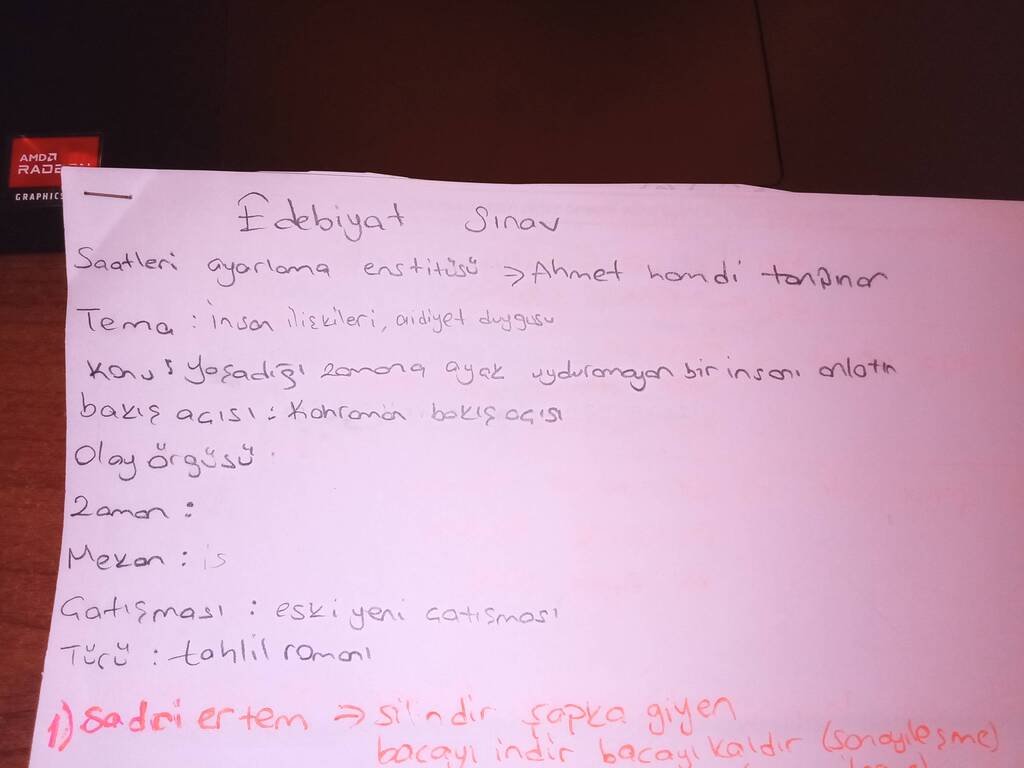 AMD
RADEON
GRAPHICS
Edebiyat Sınav
Saatleri ayarlama enstitüsü => Ahmet hamdi tanpınar
Tema : insan ilişkileri, aidiyet duygusu
Konu : Yaşadığı zamana ayak uyduramayan bir insanı anlatır
bakış açısı : Kahraman bakış açısı
Olay örgüsü
Zaman :
Mekan : is
Çatışması : eski yeni çatışması
Türü : tahlil romanı
1) Sadri ertem => silindir şapka giyen
bacayı indir bacayı kaldır (sanayileşme)